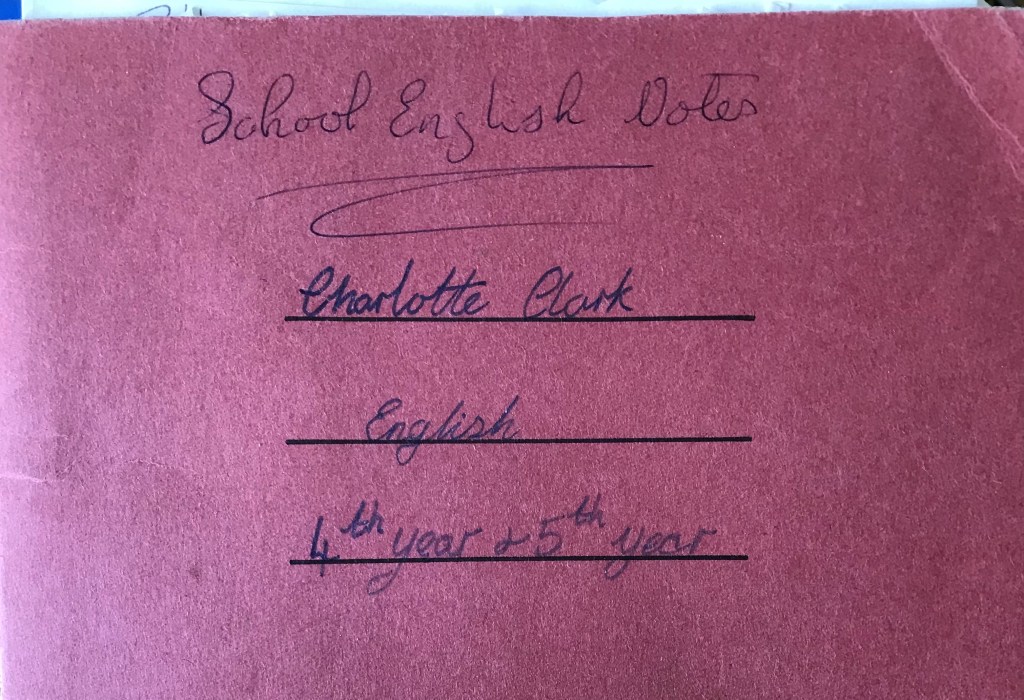 School English Notes
Charlotte Clark
English
4th year & 5th year